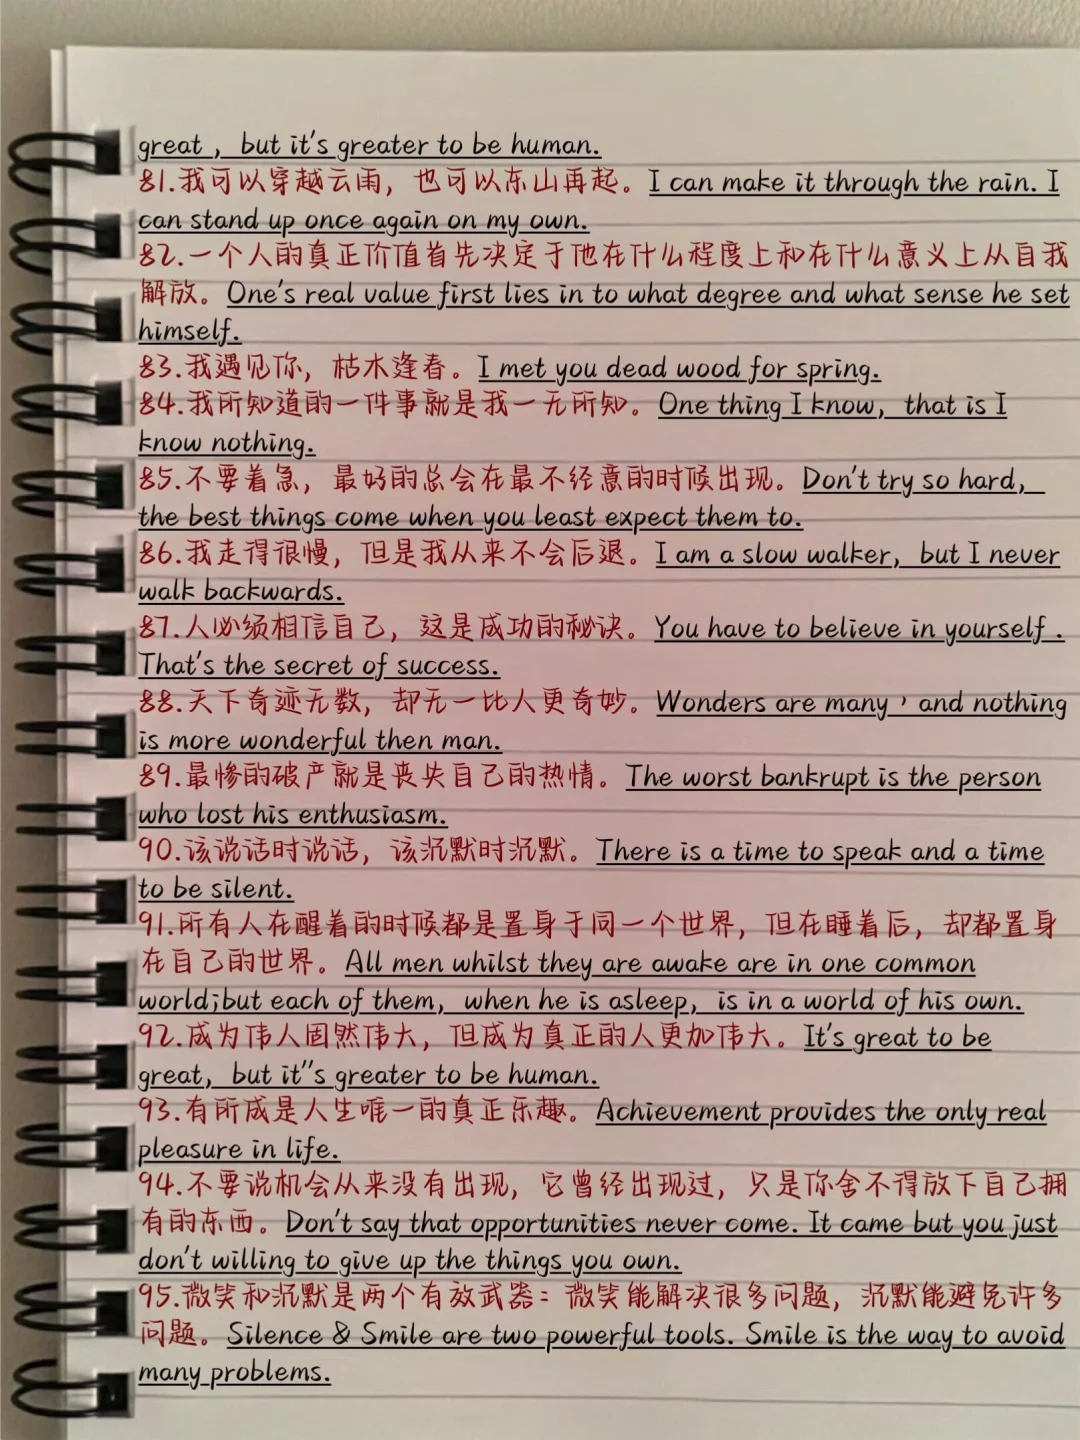 great ，but it's greater to be human.
81.我可以穿越云雨，也可以东山再起。I can make it through the rain. I
can stand up once again on my own.
82.一个人的真正价值首先决定于他在什么程度上和在什么意义上从自我
解放。One's real value first lies in to what degree and what sense he set
himself.
83.我遇见你，枯木逢春。I met you dead wood for spring.
84.我所知道的一件事就是我一无所知。One thing I know，that is I
know nothing.
85.不要着急，最好的总会在最不经意的时候出现。Don't try so hard，
the best things come when you least expect them to.
86.我走得很慢，但是我从来不会后退。I am a slow walker，but I never
walk backwards.
87.人必须相信自己，这是成功的秘诀。You have to believe in yourself .
That's the secret of success.
88.天下奇迹无数，却无一比人更奇妙。Wonders are many，and nothing
is more wonderful then man.
89.最惨的破产就是丧失自己的热情。The worst bankrupt is the person
who lost his enthusiasm.
90.该说话时说话，该沉默时沉默。There is a time to speak and a time
to be silent.
91.所有人在醒着的时候都是置身于同一个世界，但在睡着后，却都置身
在自己的世界。All men whilst they are awake are in one common
world;but each of them，when he is asleep，is in a world of his own.
92.成为伟人固然伟大，但成为真正的人更加伟大。It's great to be
great，but it"s greater to be human.
93.有所成是人生唯一的真正乐趣。Achievement provides the only real
pleasure in life.
94.不要说机会从来没有出现，它曾经出现过，只是你舍不得放下自己拥
有的东西。Don't say that opportunities never come. It came but you just
don't willing to give up the things you own.
95.微笑和沉默是两个有效武器：微笑能解决很多问题，沉默能避免许多
问题。Silence & Smile are two powerful tools. Smile is the way to avoid
many problems.